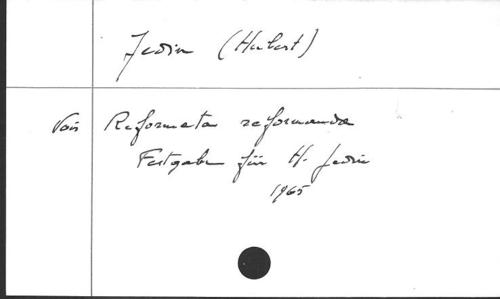 Jedin (Hubert)
Voir Reformata reformanda
Festgabe für H. Jedin
1965